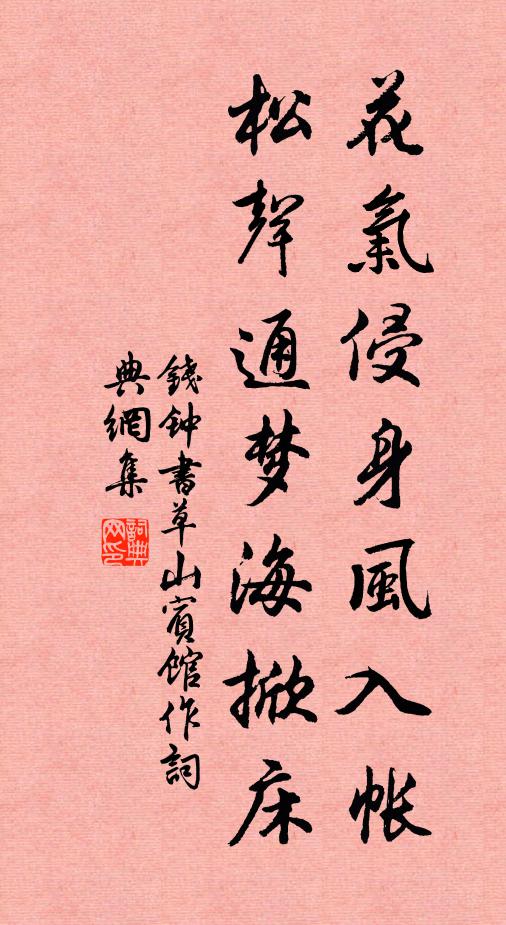 花氣侵身風入帳
松聲通梦海掀床
錢钟書草山賓館作詞
典網集
詞典网印